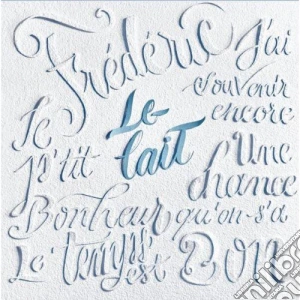 Frédéric J'ai
souvenir
encore
Le-
lait
Le
p'tit
Une
chance
Bonheur qu'on-s'a
Le temps est Bon